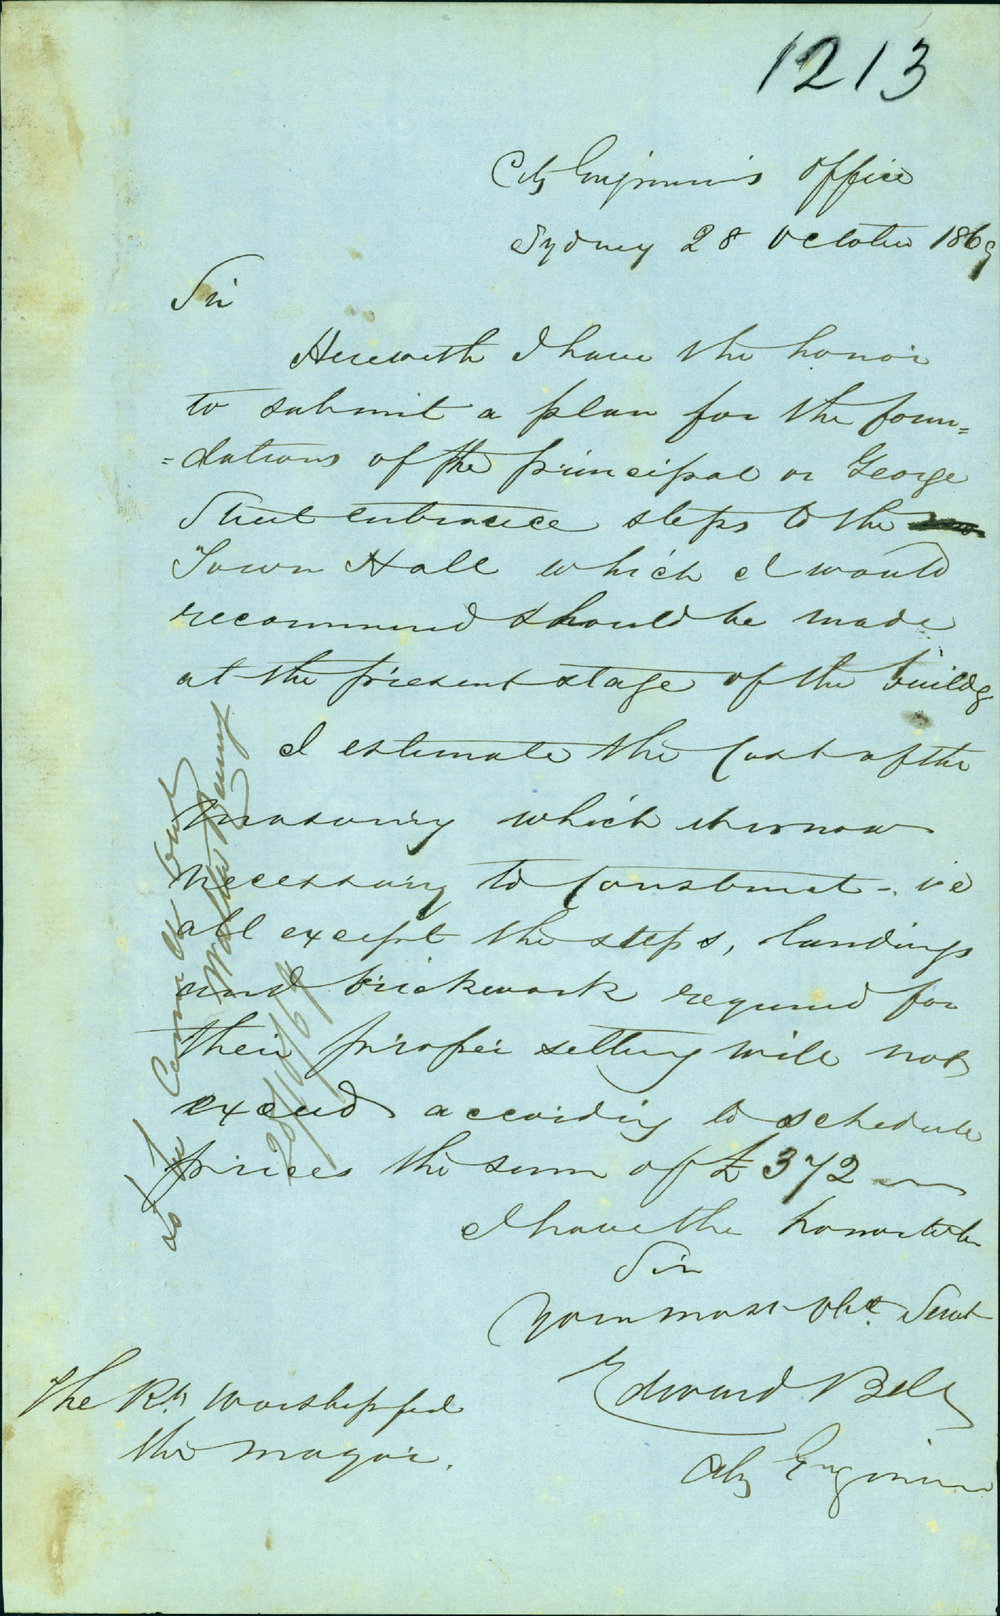 1213
City Engineer's Office
Sydney 28 October 1869
Sir
Herewith I have the honor
to submit a plan for the foun=
=dations of the principal or George
Street entrance steps to the
Town Hall which I would
recommend should be made
at the present stage of the buildg
I estimate the Cost of the
masonry which it is now
necessary to Construct - ie
all except the steps, landings
and brickwork required for
their proper setting will not
exceed according to schedule
prices the sum of £372
I have the honor to be
Sir
Your most Obt. Servt
Edward Bell
City Engineer
The Rt. Worshipful
the Mayor.
Walter Renny
28/10/69